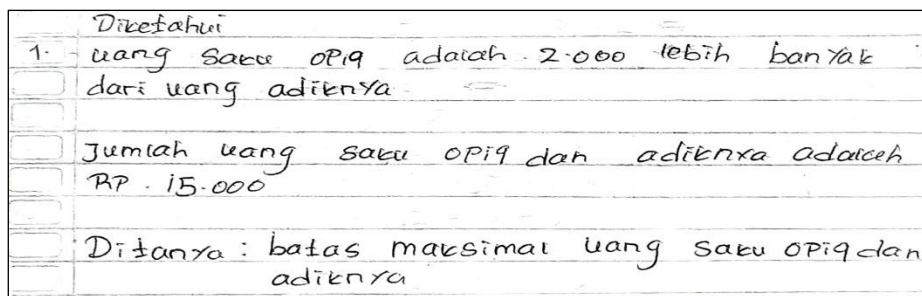 Diketahui
1. uang saku opiq adalah 2.000 lebih banyak
dari uang adiknya
Jumlah uang saku opiq dan adiknya adalah
RP. 15.000
Ditanya: batas maksimal uang saku opiq dan
adiknya